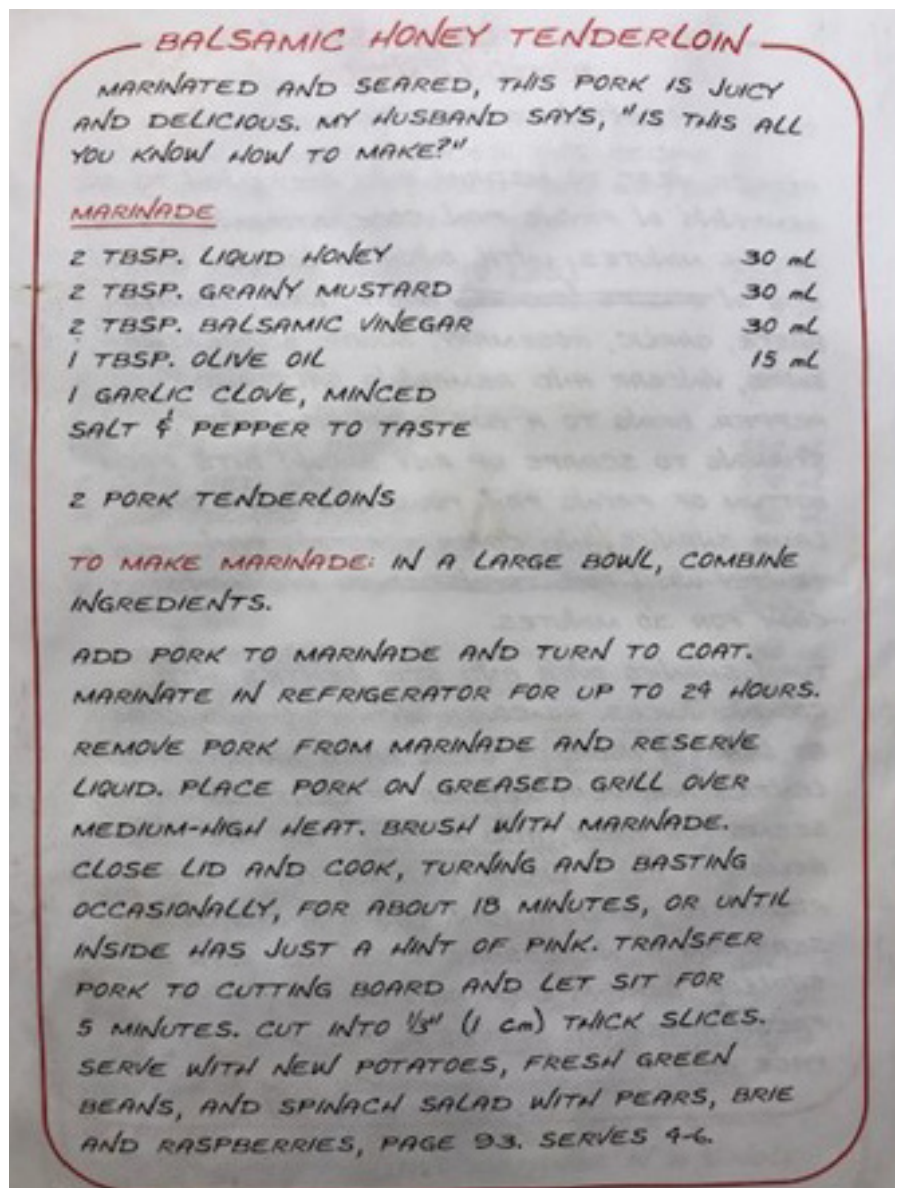 BALSAMIC HONEY TENDERLOIN
MARINATED AND SEARED, THIS PORK IS JUICY
AND DELICIOUS. MY HUSBAND SAYS, "IS THIS ALL
YOU KNOW HOW TO MAKE?"
MARINADE
2 TBSP. LIQUID HONEY 30 mL
2 TBSP. GRAINY MUSTARD 30 mL
2 TBSP. BALSAMIC VINEGAR 30 mL
1 TBSP. OLIVE OIL 15 mL
1 GARLIC CLOVE, MINCED
SALT & PEPPER TO TASTE
2 PORK TENDERLOINS
TO MAKE MARINADE: IN A LARGE BOWL, COMBINE
INGREDIENTS.
ADD PORK TO MARINADE AND TURN TO COAT.
MARINATE IN REFRIGERATOR FOR UP TO 24 HOURS.
REMOVE PORK FROM MARINADE AND RESERVE
LIQUID. PLACE PORK ON GREASED GRILL OVER
MEDIUM-HIGH HEAT. BRUSH WITH MARINADE.
CLOSE LID AND COOK, TURNING AND BASTING
OCCASIONALLY, FOR ABOUT 18 MINUTES, OR UNTIL
INSIDE HAS JUST A HINT OF PINK. TRANSFER
PORK TO CUTTING BOARD AND LET SIT FOR
5 MINUTES. CUT INTO 1/3" (1 cm) THICK SLICES.
SERVE WITH NEW POTATOES, FRESH GREEN
BEANS, AND SPINACH SALAD WITH PEARS, BRIE
AND RASPBERRIES, PAGE 93. SERVES 4-6.